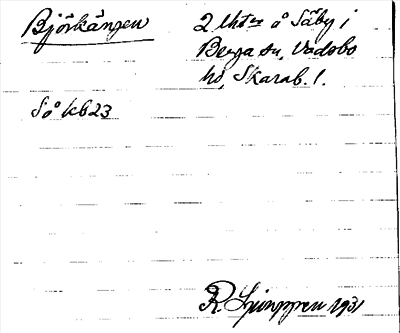 Björkängen
2 lht:er å Säby i
Berga sn, Vadsbo
hd, Skarab. l.
Så kb 23
R. Ljunggren 1931